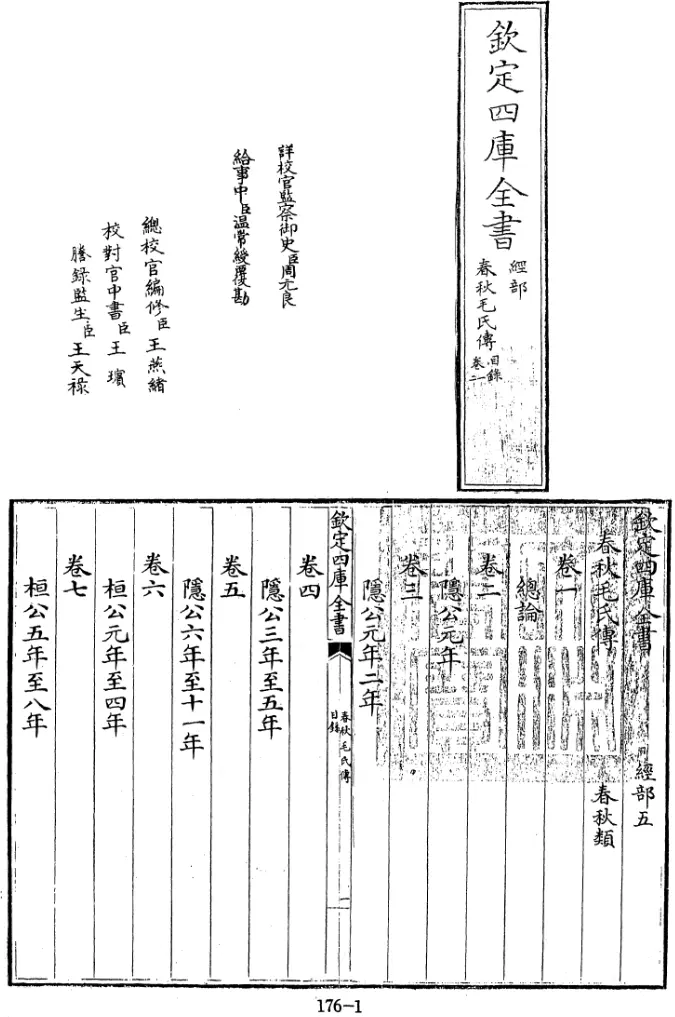 欽定四庫全書
經部
春秋毛氏傳
目錄
卷一
詳校官監察御史臣周元良
給事中臣温常綬覆勘
總校官編修臣王燕緒
校對官中書臣王璸
謄錄監生臣王天祿
欽定四庫全書
經部五
春秋毛氏傳
春秋類
卷一
總論
卷二
隱公元年
卷三
隱公元年二年
欽定四庫全書
春秋毛氏傳
目錄
一
卷四
隱公三年至五年
卷五
隱公六年至十一年
卷六
桓公元年至四年
卷七
桓公五年至八年
176-1